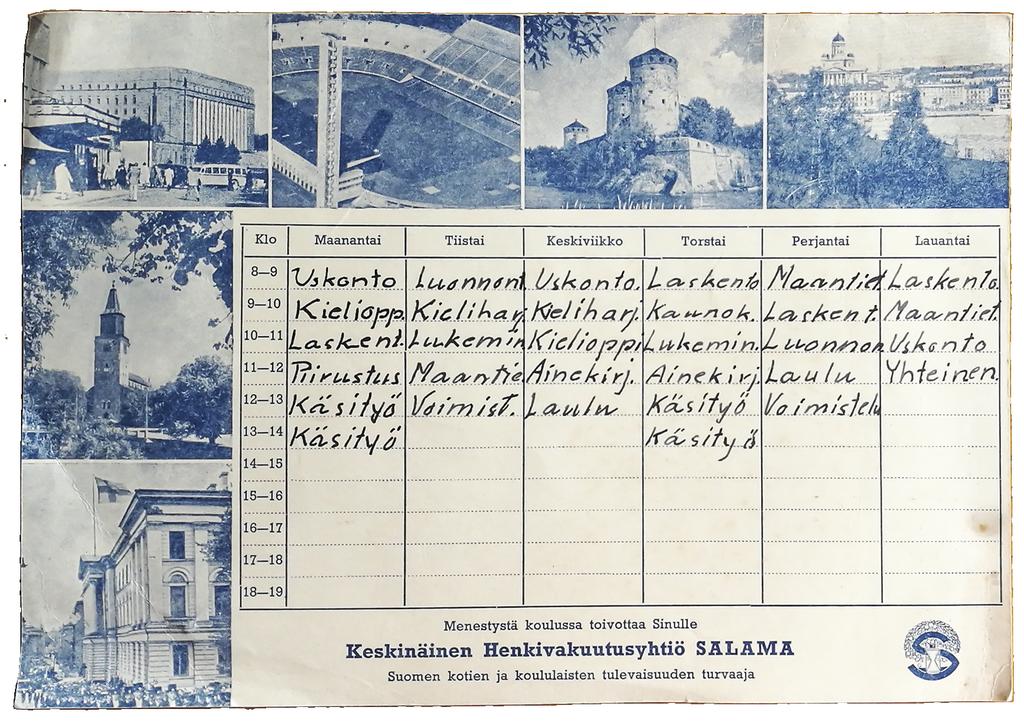 Klo Maanantai Tiistai Keskiviikko Torstai Perjantai Lauantai
8—9 Uskonto Luonnont Uskonto. Laskento Maantiet Laskento.
9—10 Kieliopp. Kieliharj. Kieliharj. Kaunok. Laskent. Maantiet.
10—11 Laskent. Lukemin. Kielioppi Lukemin. Luonnon Uskonto
11—12 Piirustus Maantie Ainekirj. Ainekirj. Laulu Yhteinen.
12—13 Käsityö Voimist. Laulu Käsityö Voimistelu
13—14 Käsityö Käsityö
14—15
15—16
16—17
17—18
18—19
Menestystä koulussa toivottaa Sinulle
Keskinäinen Henkivakuutusyhtiö SALAMA
Suomen kotien ja koululaisten tulevaisuuden turvaaja
S